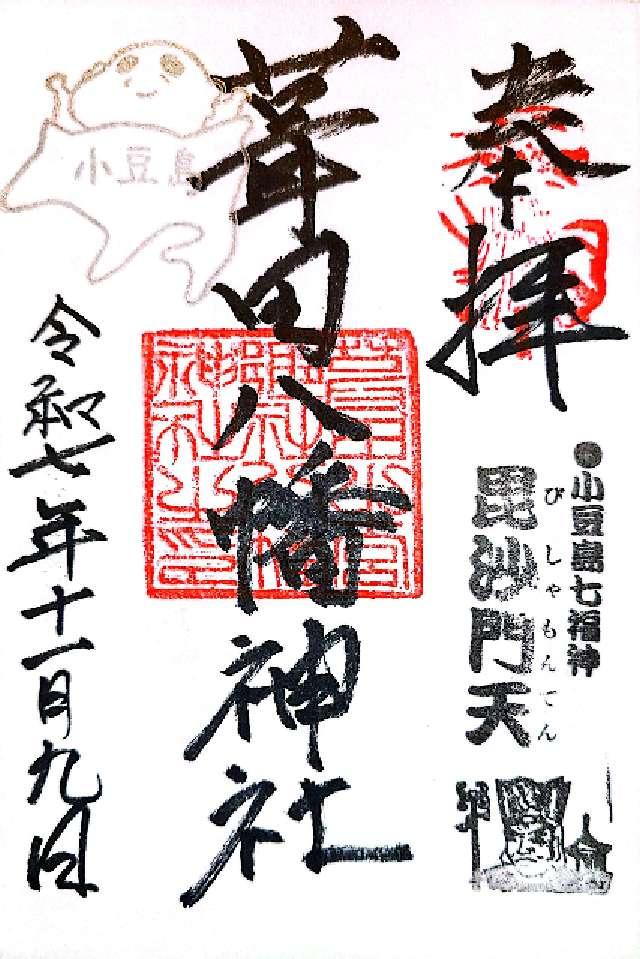 奉拝
●小豆島七福神
毘沙門天
びしゃもんてん
葺田八幡神社
小豆島
令和七年十一月九日